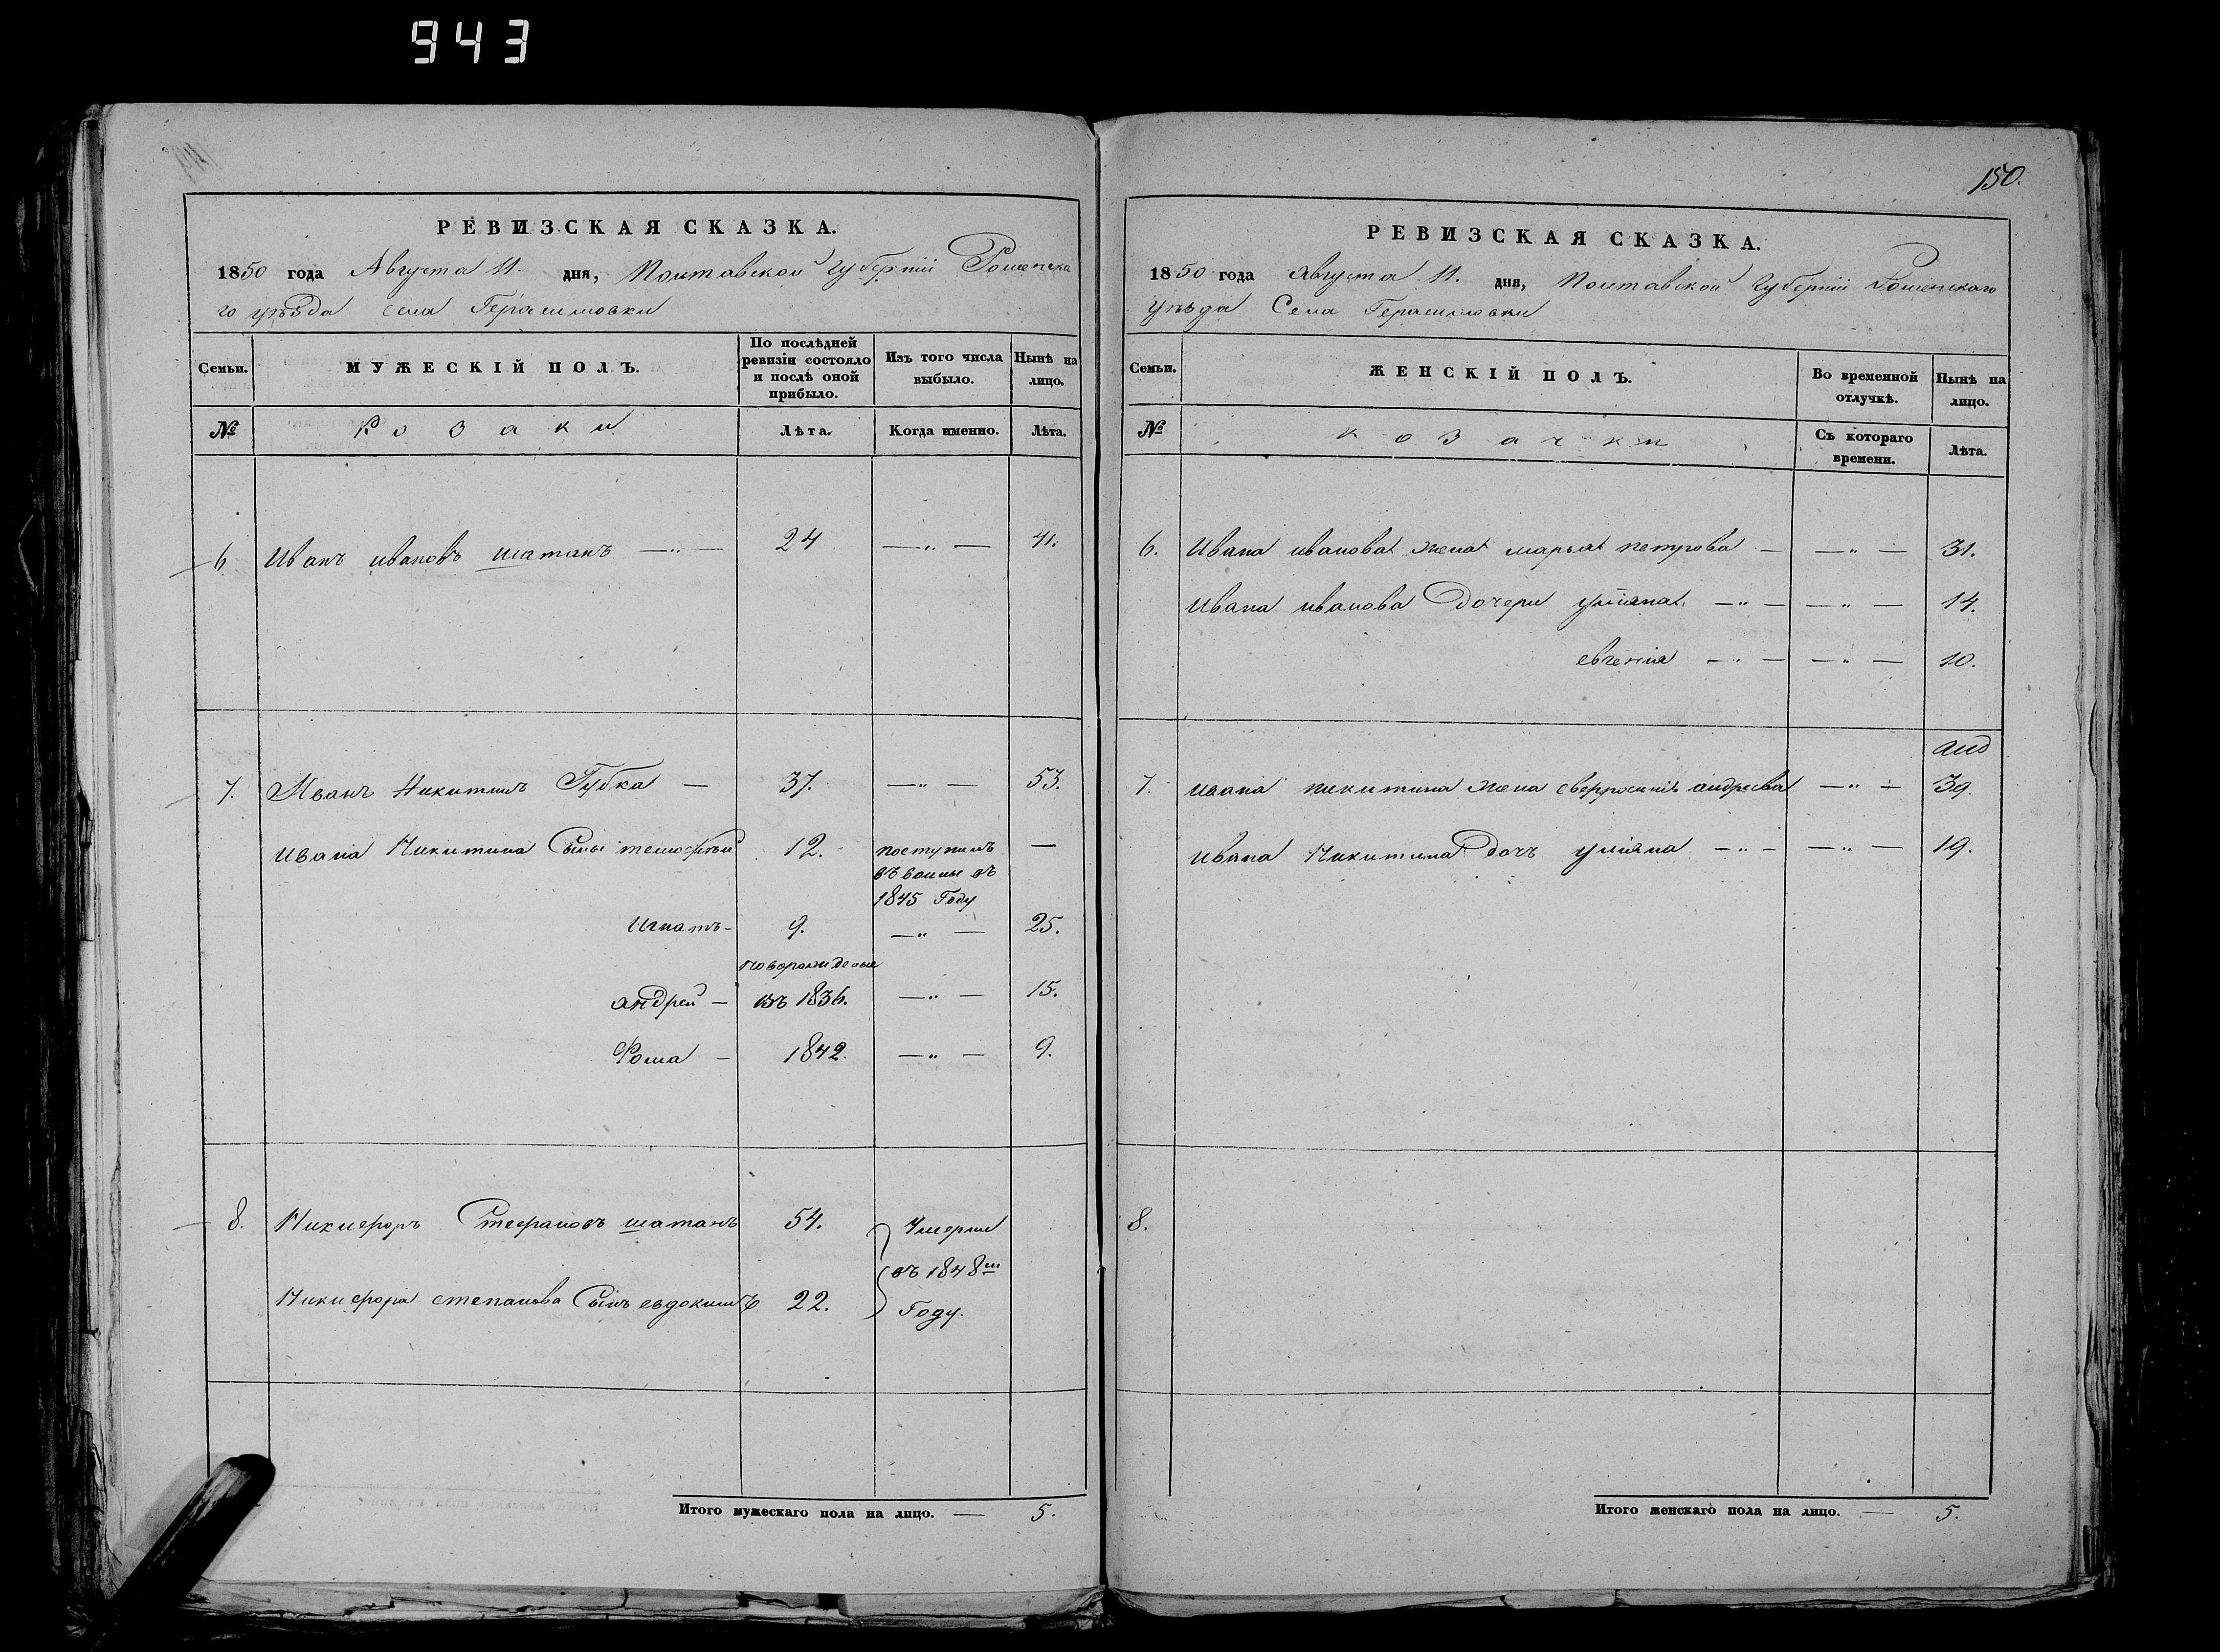 943
РЕВИЗСКАЯ СКАЗКА.
1850 года Августа 11. дня, Полтавской Губерніи Роменска
го уѣзда села Герасимовки
Семьи.
МУЖЕСКІЙ ПОЛЪ.
По послѣдней
ревизіи состояло
и послѣ оной
прибыло.
Изъ того числа
выбыло.
Нынѣ на
лицо.
№
Козаки
Лѣта.
Когда именно.
Лѣта.
6 Иванъ ивановъ шатанъ —„— 24 —„— 41.
7. Иванъ Никитинъ Губка — 37. —„— 53.
Ивана Никитина Сыны тимофѣй 12. поступилъ —
въ воины въ
1845 Году
Игнатъ — 9. —„— 25.
новорожденые
андрей — въ 1836. —„— 15.
Фома — 1842. —„— 9.
8. Никифоръ Стефановъ шатанъ 54. Умерли
въ 1848м
Никифора степанова Сынъ евдокимъ 22. Году.
Итого мужескаго пола на лицо. — 5.
150.
РЕВИЗСКАЯ СКАЗКА.
1850 года Августа 11. дня, Полтавской Губерніи Роменскаго
уѣзда Села Герасимовки
Семьи.
ЖЕНСКІЙ ПОЛЪ.
Во временной
отлучкѣ.
Нынѣ на
лицо.
№
козачки
Съ котораго
времени.
Лѣта.
6. Ивана иванова жена марья петрова — —„— 31.
Ивана иванова Дочери уліяна —„— —„— 14.
евгенія —„— —„— 10.
7. ивана никитина жена евфросинія андреева —„— 39.
Ивана Никитина Дочъ уліяна —„— —„— 19.
8.
Итого женскаго пола на лицо. — 5.